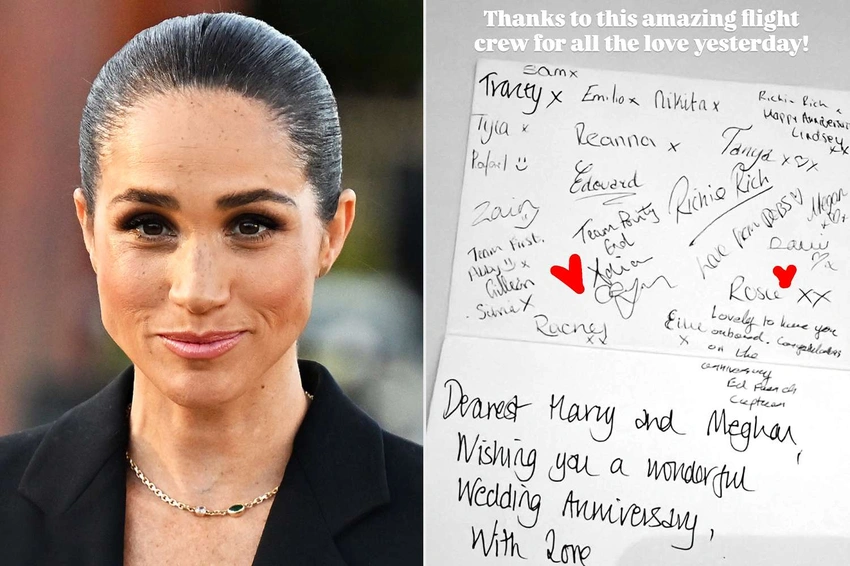 Thanks to this amazing flight
crew for all the love yesterday!
Sam x
Tracey x Emilio x Nikita x
Richie Rich x
Happy Anniversary
Lindsey xx
Tyla x
Reanna x
Tanya x♡x
Rafael
Edouard
Richie Rich
Zain
Team Party
End
Megan
Love from DEBS ♡
Team First.
Ruby x
Silvia x
Rosie xx
Rachey
xx
Ellie
x
Lovely to have you
onboard. Congratulations
on the
anniversary
Ed French
Captain
Dearest Harry and Meghan,
Wishing you a wonderful
Wedding Anniversary,
With Love